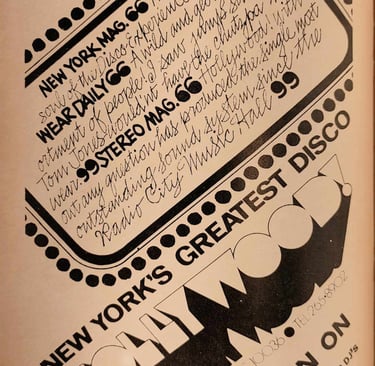 NEW YORK MAG. 66
soul of the disco experience
WEAR DAILY 66 A wild and
ortment of people. I saw jumpsuits
Tom Jones wouldn't have the chutzpa to
wear 99 STEREO MAG. 66 Hollywood with-
out any question has produced the single most
outstanding sound system since the
Radio City Music Hall 99
NEW YORK'S GREATEST DISCO
OLLYWOOD!
10036 • TEL.
N ON
DJ'S